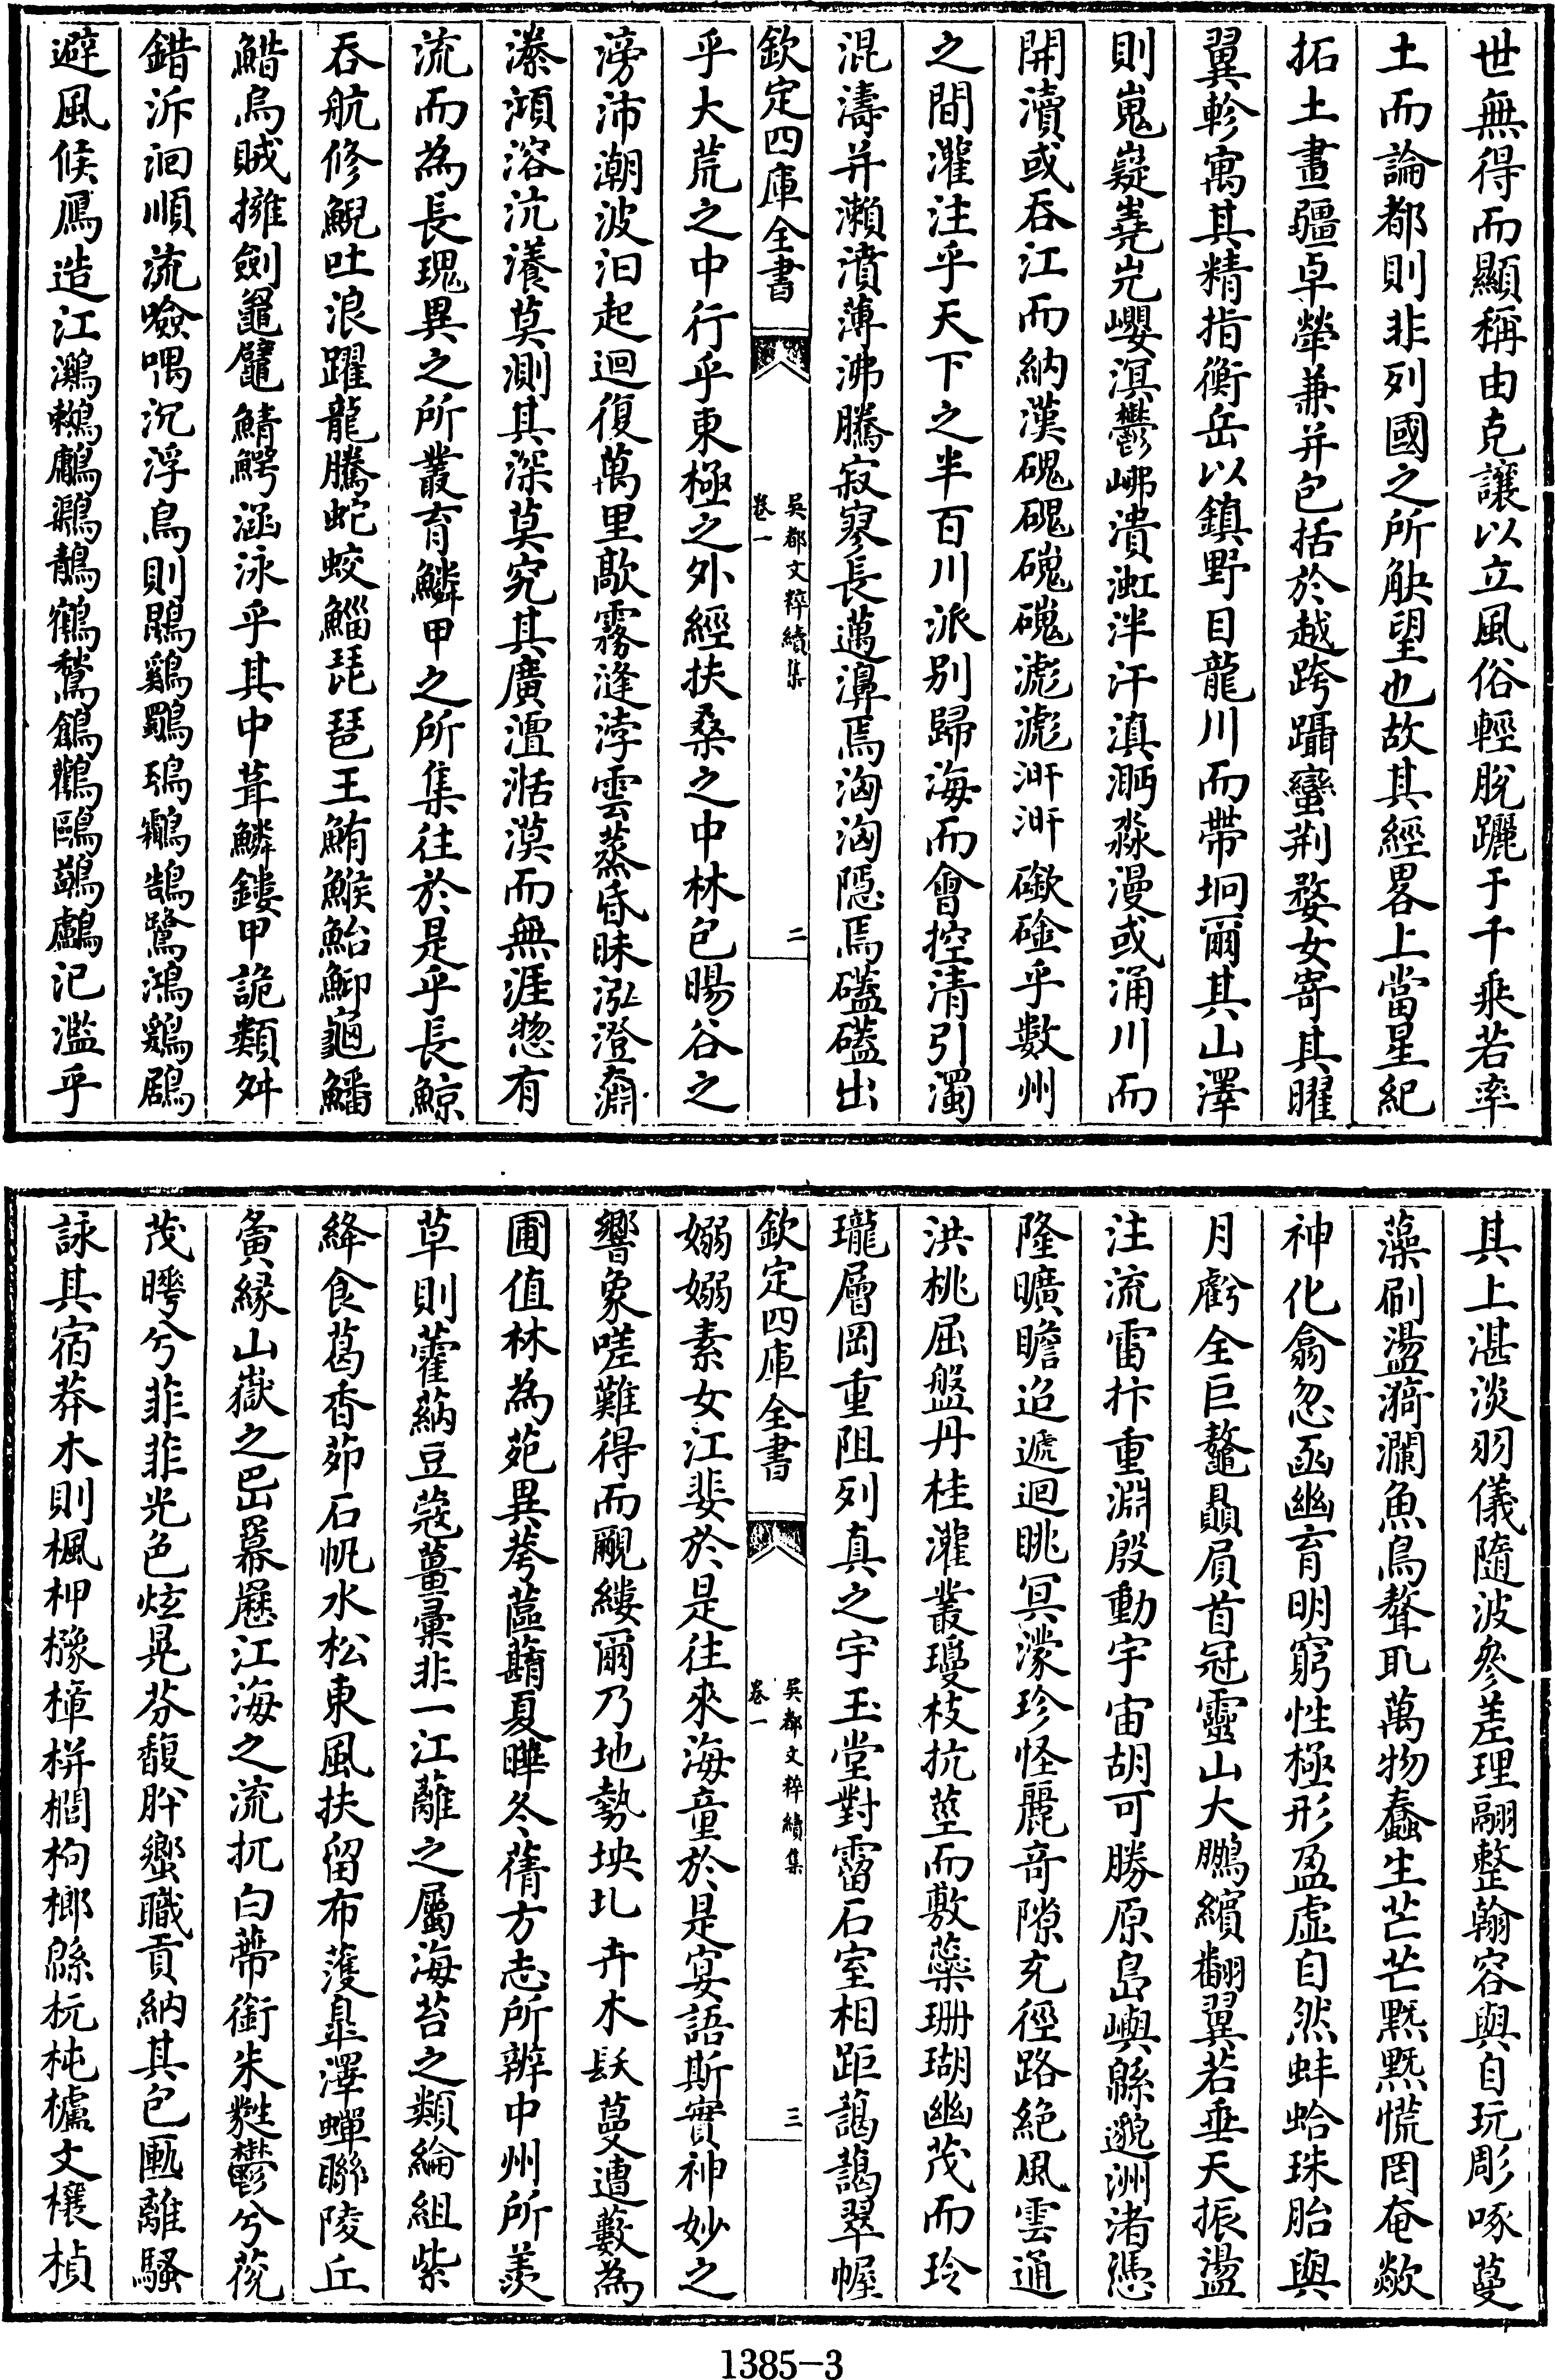 世無得而顯稱由克讓以立風俗輕脫躧于千乘若率
土而論都則非列國之所觖望也故其經畧上當星紀
拓土畫疆卓犖兼并包括於越跨躡蠻荆婺女寄其曜
翼軫寓其精指衡岳以鎮野目龍川而帶坰爾其山澤
則嵬嶷嶢屼巊溟鬱岪潰渱泮汗滇㴐淼漫或涌川而
開瀆或吞江而納漢磈磈磈磈滮滮涆涆磤碒乎數州
之間灌注乎天下之半百川派别歸海而會控清引濁
混濤并瀨濆薄沸騰寂寥長邁濞焉洶洶隱焉礚礚出
欽定四庫全書
吳都文粹續集
卷一
二
乎大荒之中行乎東極之外經扶桑之中林包暘谷之
滂沛潮波汩起迴復萬里歊霧漨浡雲蒸昏昧泓澄奫
潫澒溶沆瀁莫測其深莫究其廣澶湉漠而無涯惣有
流而為長瑰異之所叢育鱗甲之所集往於是乎長鯨
吞航修鯢吐浪躍龍騰蛇蛟鯔琵琶王鮪鯸鮐鮣龜鱕
䱜烏賊擁劍䵶鼊鯖鰐涵泳乎其中葺鱗鏤甲詭類舛
錯泝洄順流噞喁沉浮鳥則鵾鷄鸀鳿鸘鵠鷺鴻鷄鶢
避風候鴈造江鸂鶒鷛𪆫鶄鶴鶖鶬鸛鷗鷁鸕氾濫乎
其上湛淡羽儀隨波參差理翮整翰容與自玩彫啄蔓
藻刷盪漪瀾魚鳥聱耴萬物蠢生芒芒黖黖慌罔奄欻
神化翕忽函幽育明窮性極形盈虚自然蚌蛤珠胎與
月虧全巨鼇贔屓首冠靈山大鵬繽翻翼若垂天振盪
注流雷抃重淵殷動宇宙胡可勝原島嶼緜邈洲渚憑
隆曠瞻迢遞迴眺冥濛珍怪麗竒隙充徑路絶風雲通
洪桃屈盤丹桂灌叢瓊枝抗莖而敷蘂珊瑚幽茂而玲
瓏層岡重阻列真之宇玉堂對霤石室相距藹藹翠幄
欽定四庫全書
吳都文粹續集
卷一
三
嫋嫋素女江婓於是往來海童於是宴語斯實神妙之
響象嗟難得而覼縷爾乃地勢坱圠卉木镺蔓遭藪為
圃值林為苑異荂蓲蘛夏曄冬蒨方志所辨中州所羨
草則藿蒳豆蔻薑彚非一江蘺之屬海苔之類綸組紫
絳食葛香茆石帆水松東風扶留布濩皐澤蟬聯陵丘
夤縁山嶽之岊羃歷江海之流扤白蔕銜朱蕤鬱兮䓲
茂曄兮菲菲光色炫晃芬馥肸蠁職貢納其包匭離騷
詠其宿莽木則楓柙櫲樟栟櫚枸榔緜杬杶櫨文欀楨